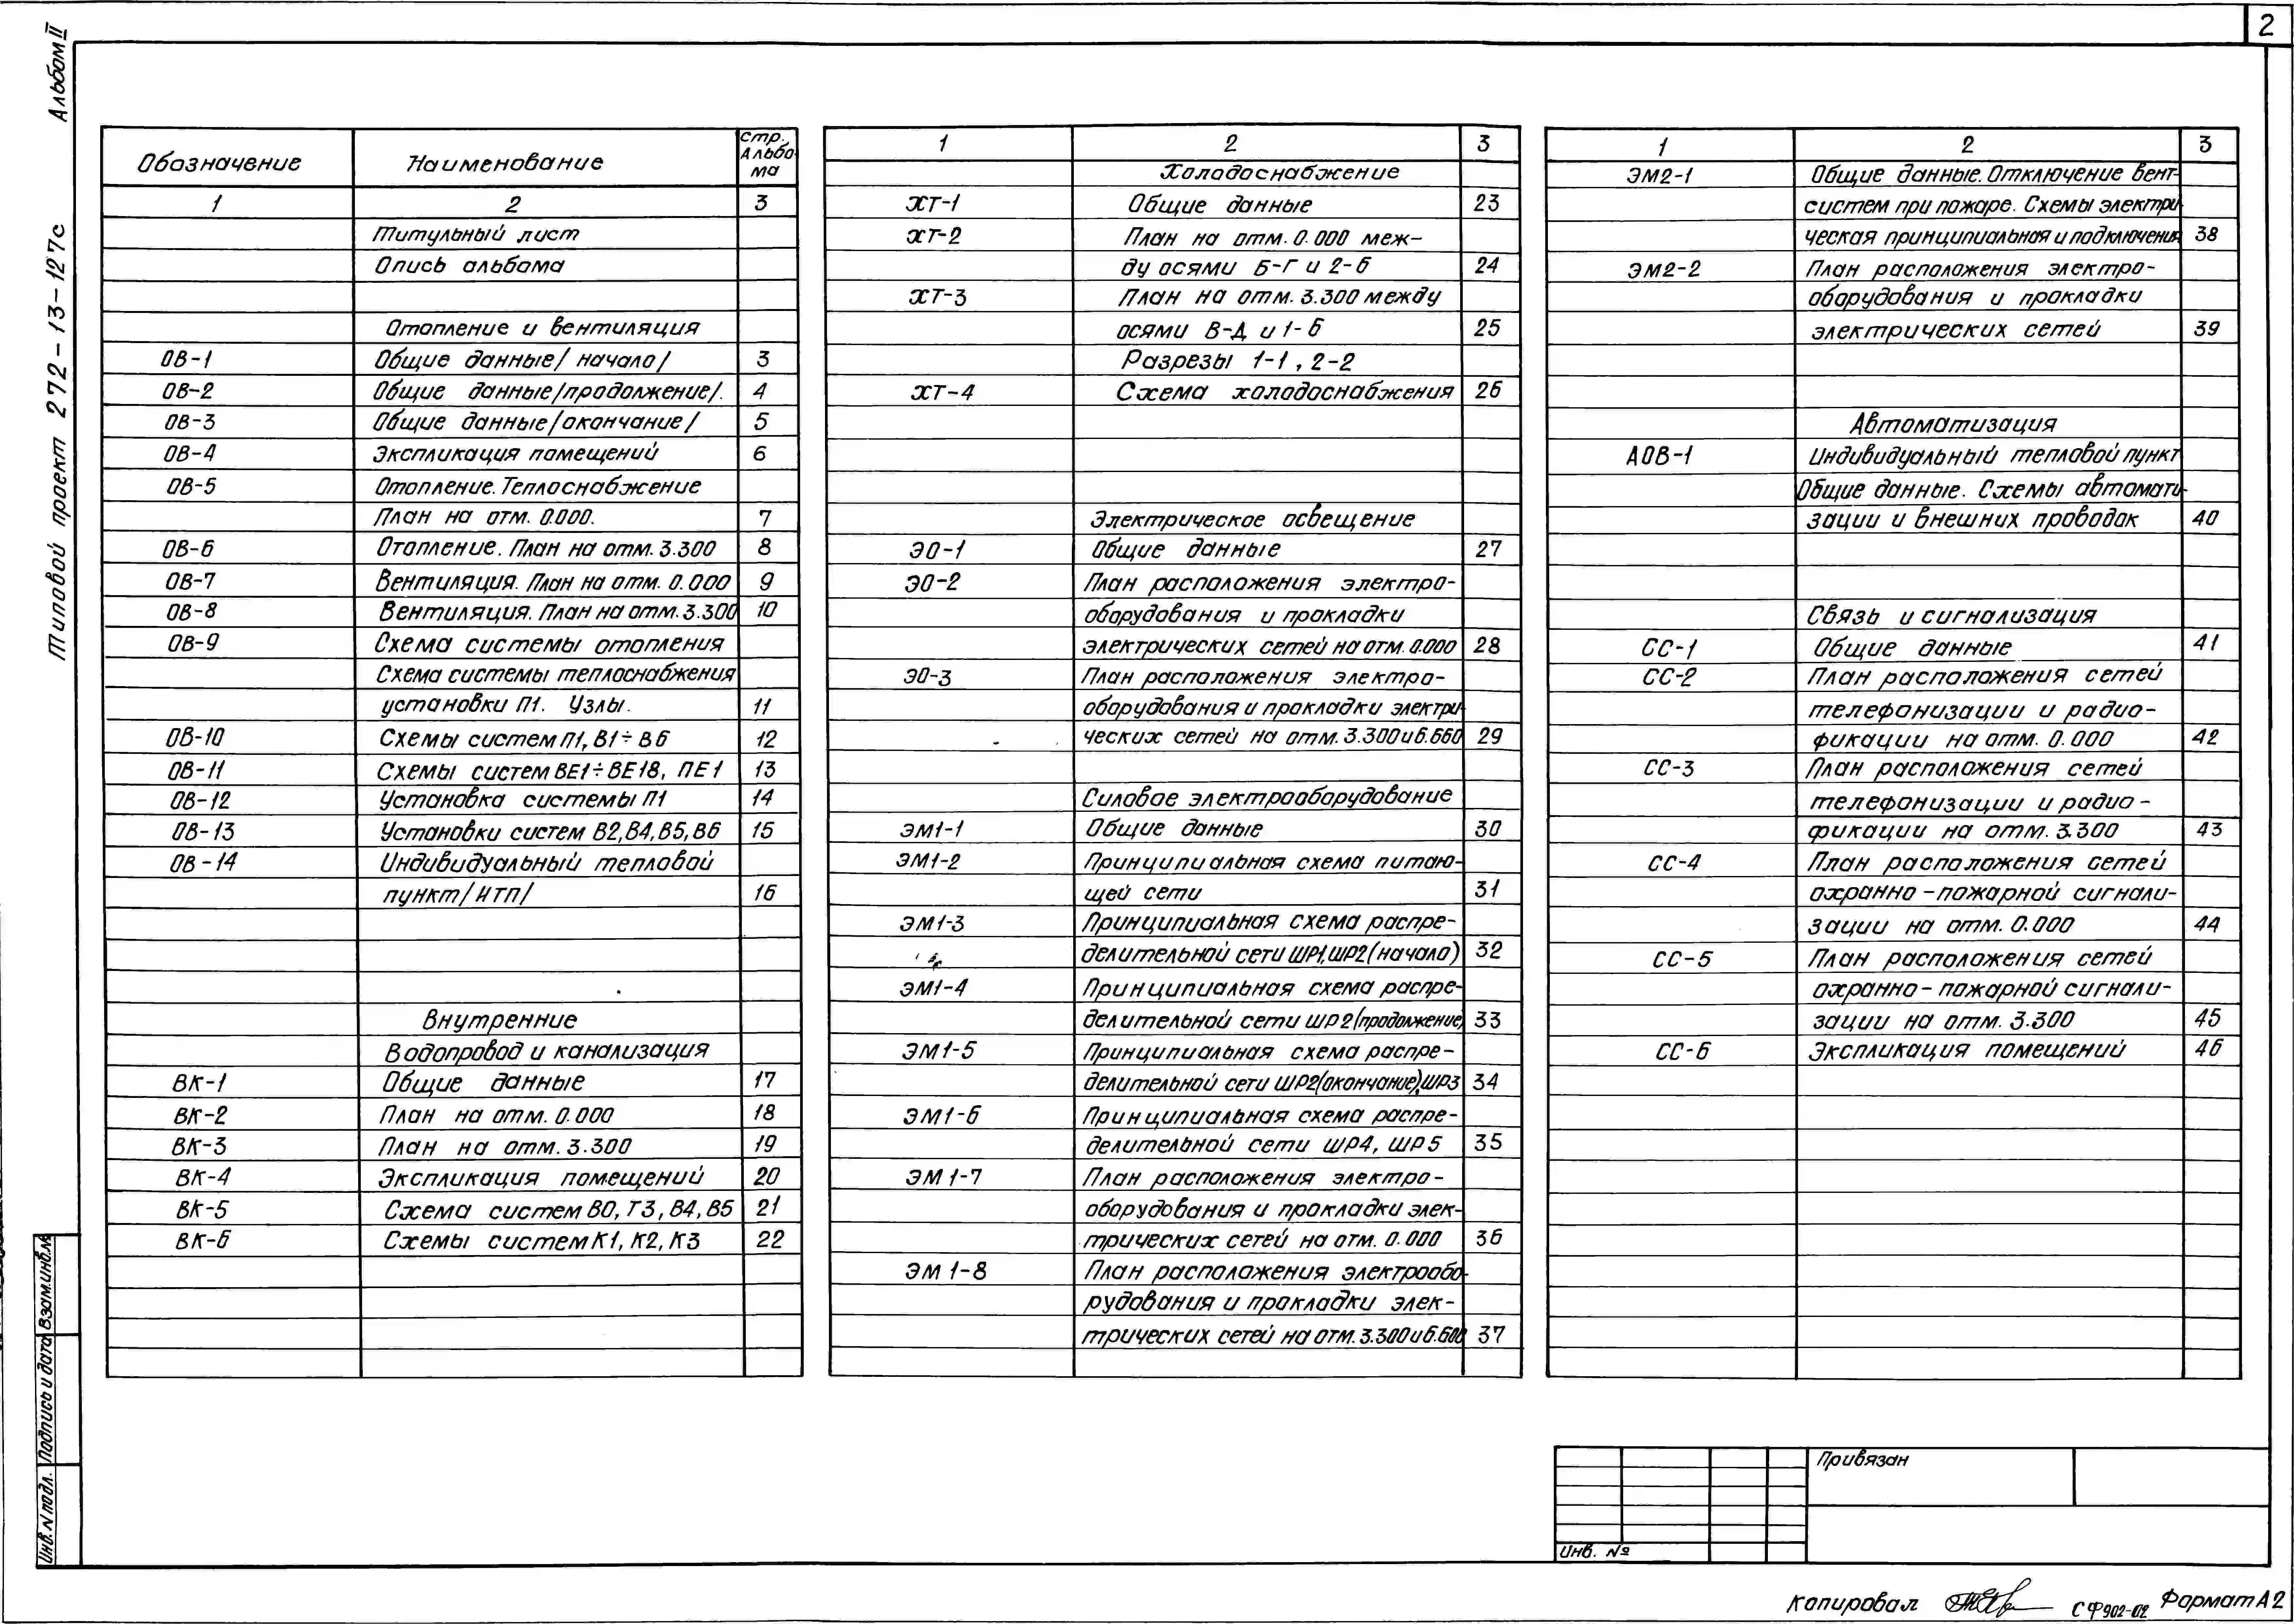 2
Альбом II
Типовой проект 272-13-127с
Обозначение
Наименование
стр. Альбо-
ма
1 2 3
Титульный лист
Опись альбома
Отопление и вентиляция
ОВ-1 Общие данные/начало/ 3
ОВ-2 Общие данные/продолжение/. 4
ОВ-3 Общие данные/окончание/ 5
ОВ-4 Экспликация помещений 6
ОВ-5 Отопление. Теплоснабжение
План на отм. 0.000. 7
ОВ-6 Отопление. План на отм. 3.300 8
ОВ-7 Вентиляция. План на отм. 0.000 9
ОВ-8 Вентиляция. План на отм. 3.300 10
ОВ-9 Схема системы отопления
Схема системы теплоснабжения
установки П1. Узлы. 11
ОВ-10 Схемы систем П1, В1÷В6 12
ОВ-11 Схемы систем ВЕ1÷ВЕ18, ПЕ1 13
ОВ-12 Установка системы П1 14
ОВ-13 Установки систем В2, В4, В5, В6 15
ОВ-14 Индивидуальный тепловой
пункт/ИТП/ 16
Внутренние
Водопровод и канализация
ВК-1 Общие данные 17
ВК-2 План на отм. 0.000 18
ВК-3 План на отм. 3.300 19
ВК-4 Экспликация помещений 20
ВК-5 Схема систем В0, Т3, В4, В5 21
ВК-6 Схемы систем К1, К2, К3 22
1 2 3
Холодоснабжение
ХТ-1 Общие данные 23
ХТ-2 План на отм. 0.000 меж-
ду осями Б-Г и 2-6 24
ХТ-3 План на отм. 3.300 между
осями В-Д и 1-6 25
Разрезы 1-1, 2-2
ХТ-4 Схема холодоснабжения 26
Электрическое освещение
ЭО-1 Общие данные 27
ЭО-2 План расположения электро-
оборудования и прокладки
электрических сетей на отм. 0.000 28
ЭО-3 План расположения электро-
оборудования и прокладки электри-
ческих сетей на отм. 3.300 и 6.660 29
Силовое электрооборудование
ЭМ1-1 Общие данные 30
ЭМ1-2 Принципиальная схема питаю-
щей сети 31
ЭМ1-3 Принципиальная схема распре-
делительной сети ШР1, ШР2 (начало) 32
ЭМ1-4 Принципиальная схема распре-
делительной сети ШР2 (продолжение) 33
ЭМ1-5 Принципиальная схема распре-
делительной сети ШР2(окончание), ШР3 34
ЭМ1-6 Принципиальная схема распре-
делительной сети ШР4, ШР5 35
ЭМ1-7 План расположения электро-
оборудования и прокладки элек-
трических сетей на отм. 0.000 36
ЭМ1-8 План расположения электрообо-
рудования и прокладки элек-
трических сетей на отм. 3.300 и 6.600 37
1 2 3
ЭМ2-1 Общие данные. Отключение вент-
систем при пожаре. Схемы электри-
ческая принципиальная и подключения 38
ЭМ2-2 План расположения электро-
оборудования и прокладки
электрических сетей 39
Автоматизация
АОВ-1 Индивидуальный тепловой пункт
Общие данные. Схемы автомати-
зации и внешних проводок 40
Связь и сигнализация
СС-1 Общие данные 41
СС-2 План расположения сетей
телефонизации и радио-
фикации на отм. 0.000 42
СС-3 План расположения сетей
телефонизации и радио-
фикации на отм. 3.300 43
СС-4 План расположения сетей
охранно-пожарной сигнали-
зации на отм. 0.000 44
СС-5 План расположения сетей
охранно-пожарной сигнали-
зации на отм. 3.300 45
СС-6 Экспликация помещений 46
Взам.инв.№
Подпись и дата
Инв. N подл.
Привязан
Инв. №
Копировал
СФ902-02
Формат А2